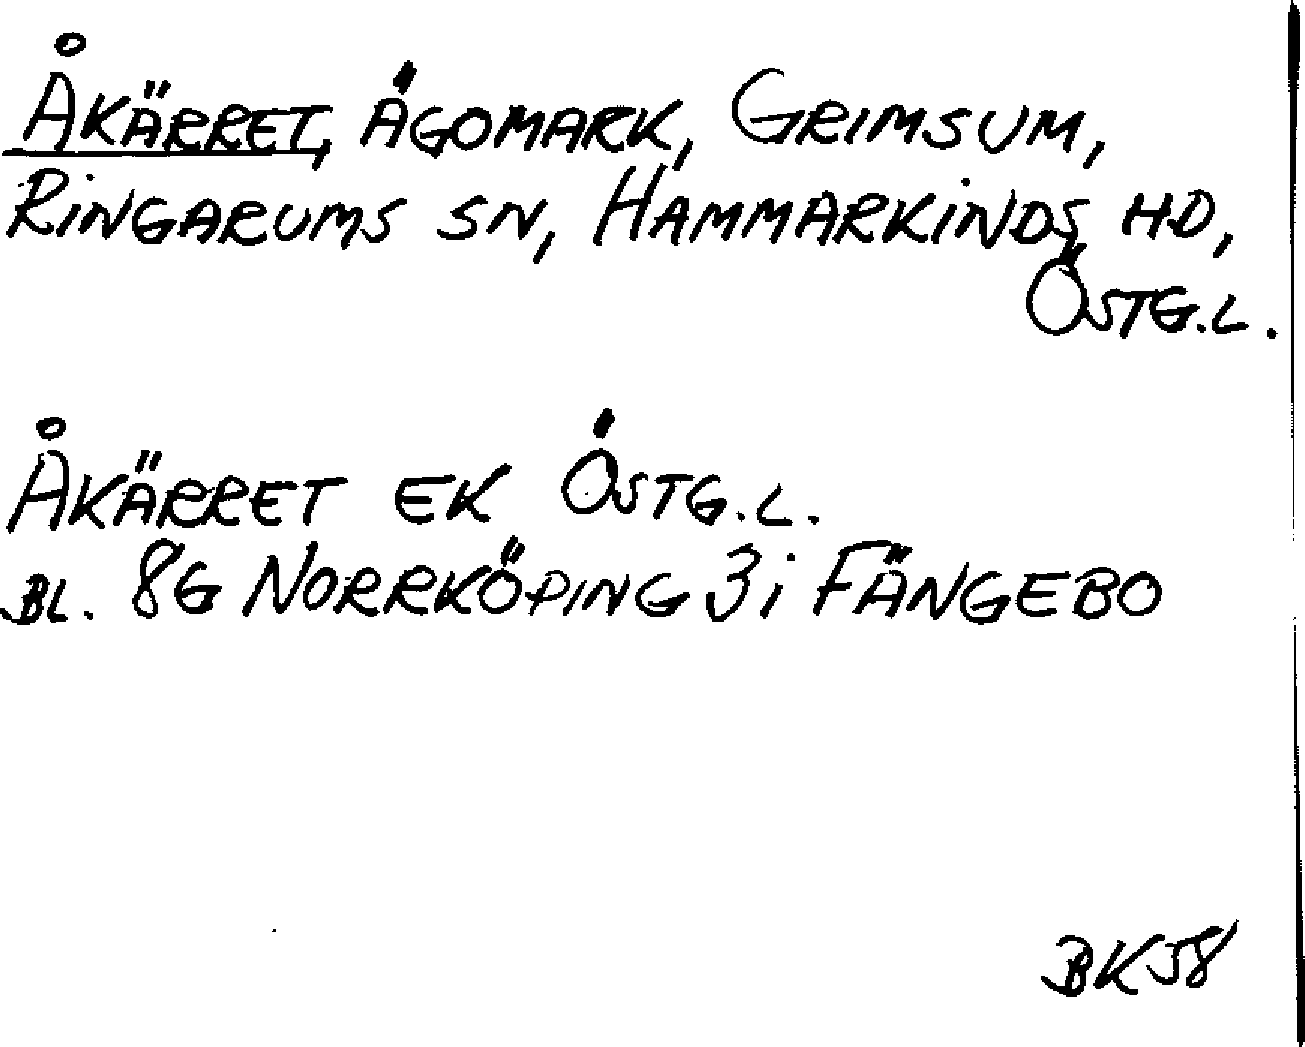 Åkärret, Ägomark, Grimsum,
Ringarums sn, Hammarkinds hd,
Östg.l.
Åkärret ek Östg.l.
bl. 8G Norrköping 3i Fängebo
BK58